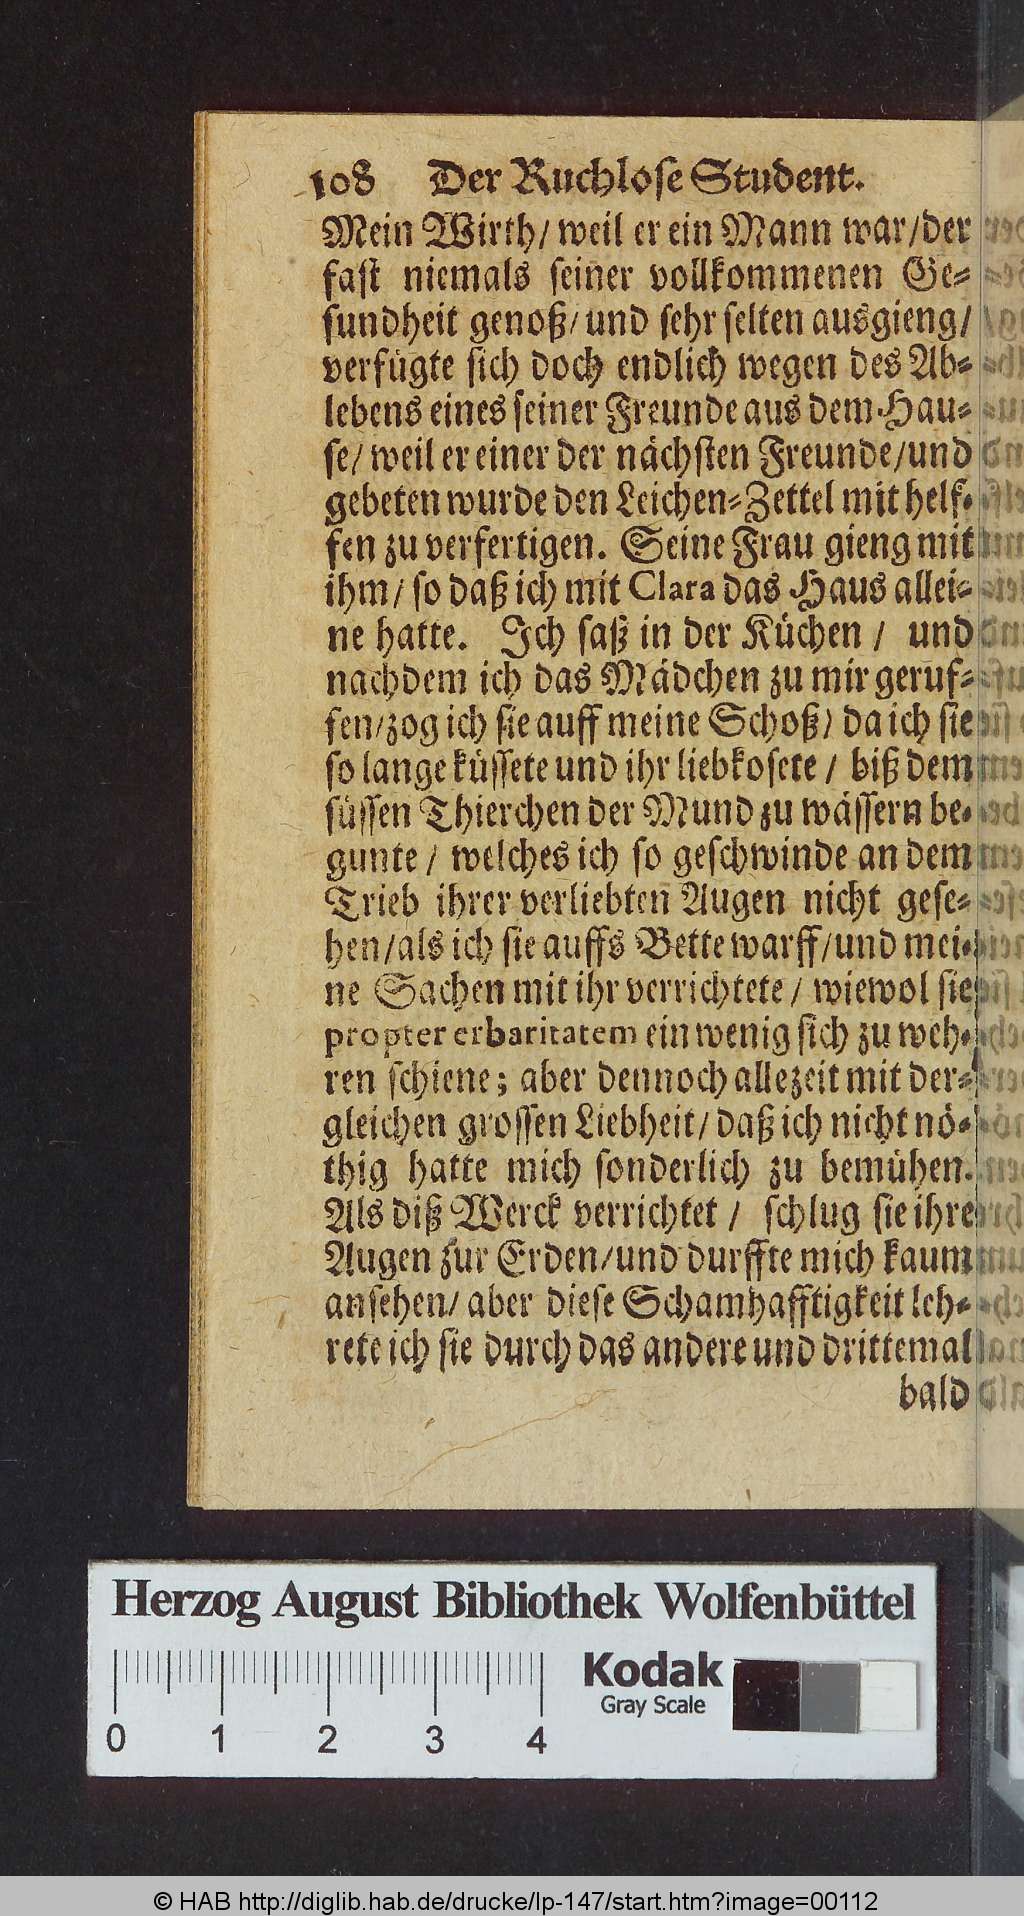 108 Der Ruchlose Student.
Mein Wirth/ weil er ein Mann war/der
fast niemals seiner vollkommenen Ge-
sundheit genoß/ und sehr selten ausgieng/
verfügte sich doch endlich wegen des Ab-
lebens eines seiner Freunde aus dem Hau-
se/ weil er einer der nächsten Freunde/und
gebeten wurde den Leichen-Zettel mit helf-
fen zu verfertigen. Seine Frau gieng mit
ihm/ so daß ich mit Clara das Haus allei-
ne hatte. Ich saß in der Küchen / und
nachdem ich das Mädchen zu mir geruf-
fen/zog ich sie auff meine Schoß/ da ich sie
so lange küssete und ihr liebkosete / biß dem
süssen Thierchen der Mund zu wässern be-
gunte / welches ich so geschwinde an dem
Trieb ihrer verliebten Augen nicht gese-
hen/als ich sie auffs Bette warff/und mei-
ne Sachen mit ihr verrichtete / wiewol sie
propter erbaritatem ein wenig sich zu weh-
ren schiene; aber dennoch allezeit mit der-
gleichen grossen Liebheit/ daß ich nicht nö-
thig hatte mich sonderlich zu bemühen.
Als diß Werck verrichtet / schlug sie ihre
Augen zur Erden/und durffte mich kaum
ansehen/ aber diese Schamhafftigkeit leh-
rete ich sie durch das andere und drittemal
bald
Herzog August Bibliothek Wolfenbüttel
Kodak
Gray Scale
0 1 2 3 4
© HAB http://diglib.hab.de/drucke/lp-147/start.htm?image=00112